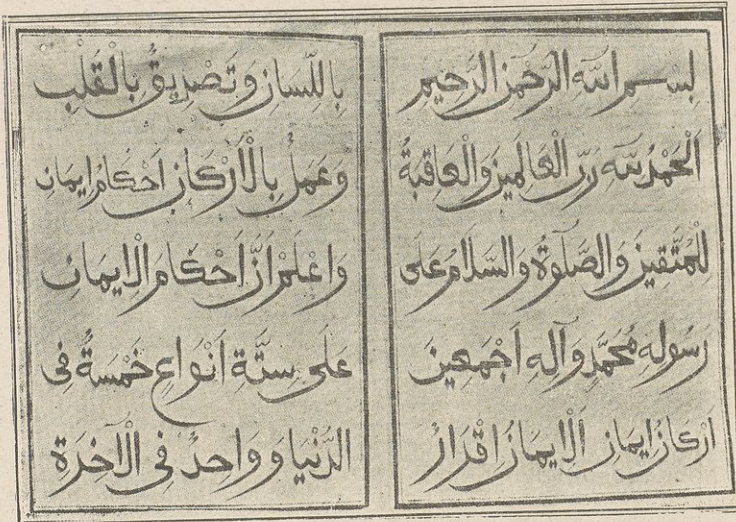 بِسْمِ اللهِ الرَّحْمٰنِ الرَّحِيمِ
اَلْحَمْدُ للهِ رَبِّ الْعَالَمِينَ وَالْعَاقِبَةُ
لِلْمُتَّقِينَ وَالصَّلٰوةُ وَالسَّلَامُ عَلَى
رَسُولِهِ مُحَمَّدٍ وَآلِهِ اَجْمَعِينَ
اَرْكَانُ اِيمَانِ اَلْاِيمَانُ اِقْرَارٌ
بِاللِّسَانِ وَتَصْدِيقٌ بِالْقَلْبِ
وَعَمَلٌ بِالْاَرْكَانِ اَحْكَامُ اِيمَانِ
وَاعْلَمْ اَنَّ اَحْكَامَ الْاِيمَانِ
عَلَى سِتَّةِ اَنْوَاعٍ خَمْسَةٌ فِى
الدُّنْيَا وَوَاحِدٌ فِى الْاٰخِرَةِ